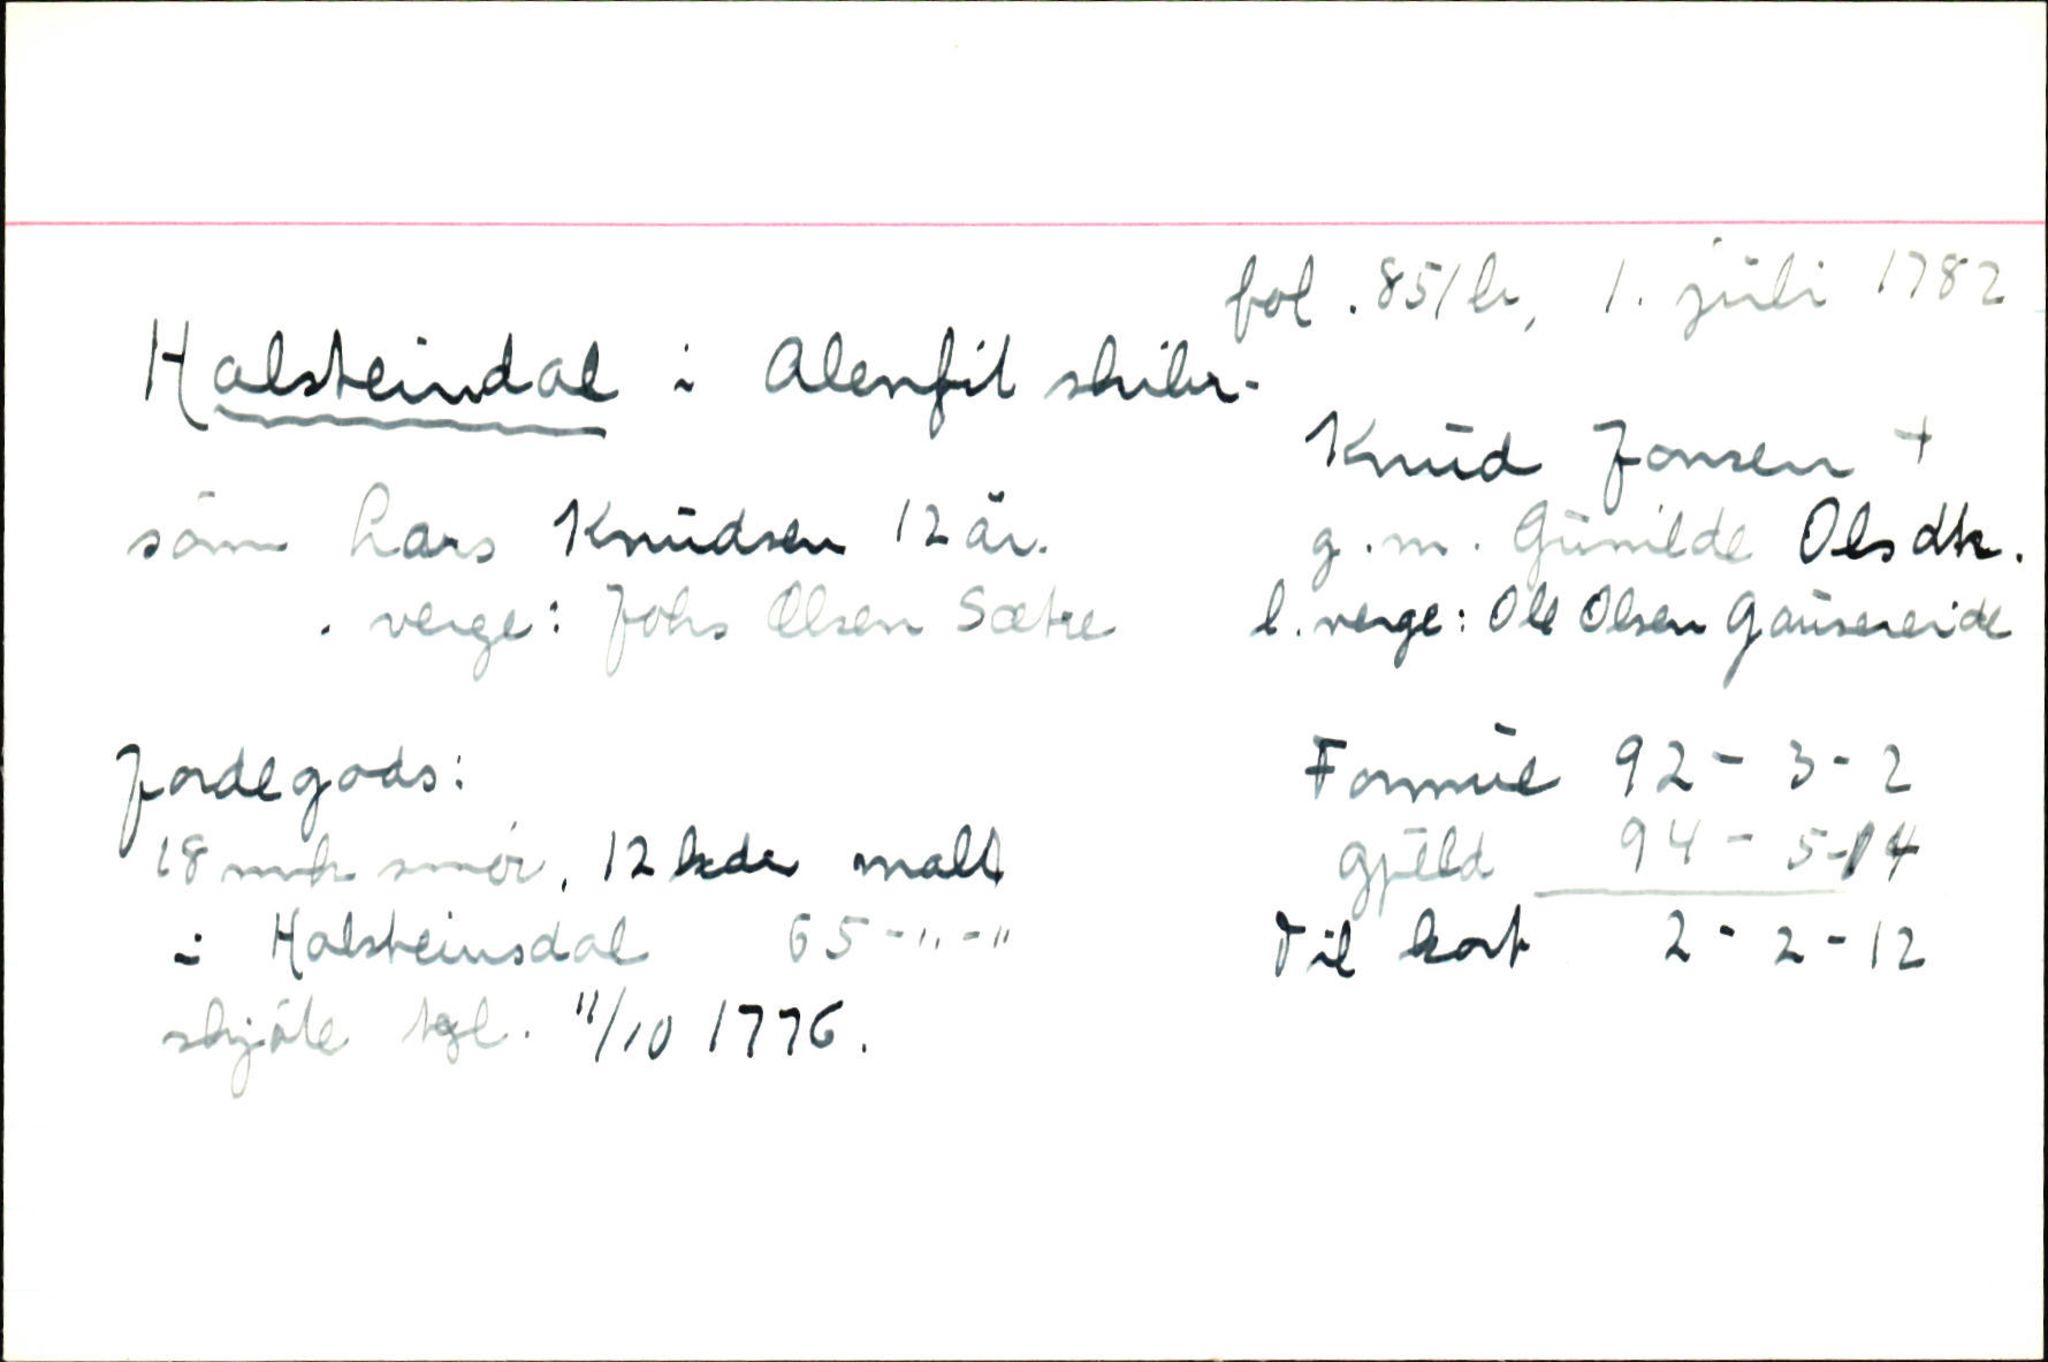 fol. 851b, 1. juli 1782
Halsteindal i Alenfit skibr.
Knud Jonsen +
g.m. Gunilde Olsdtr.
l. verge: Ole Olsen Gausereide
sönn Lars Knudsen 12 år.
. verge: Johs Olsen Sætre
Jordegods:
18 mrk smör, 12 kder malt
i Halsteinsdal 65-"-"
skjöte tgl. 11/10 1776.
Formue 92-3-2
Gjeld 94-5-14
Til kort 2-2-12